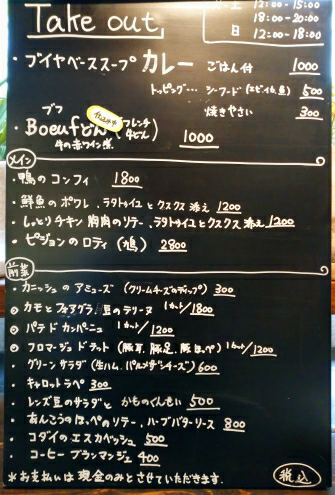 Take out
～土 12:00-15:00
18:00-20:00
日 12:00-18:00
・ブイヤベーススープ カレー ごはん付 1000
トッピング… シーフード(エビ,イカ,魚) 500
焼きやさい 300
ブフ
・Boeufどん (フレンチ牛どん) 1000
牛の赤ワイン煮
メイン
・鴨のコンフィ 1800
・鮮魚のポワレ、ラタトゥイユとクスクス添え 1200
・しっとりチキン胸肉のソテー、ラタトゥイユとクスクス添え 1200
・ピジョンのロティ(鳩) 2800
前菜
・カニッシュのアミューズ (クリームチーズのディップ) 300
・カモとフォアグラ、豆のテリーヌ 1カット/1800
・パテドカンパーニュ 1カット/1200
・フロマージュドテット (豚耳、豚足、豚ほっぺ) 1カット/1200
・グリーンサラダ (生ハム、パルメザンチーズ) 600
・キャロットラペ 300
・レンズ豆のサラダとかものくんせい 500
・あんこうのほっぺのソテー、ハーブバターソース 800
・コダイのエスカベッシュ 500
・コーヒーブランマンジェ 400
*お支払いは現金のみとさせていただきます.
税込